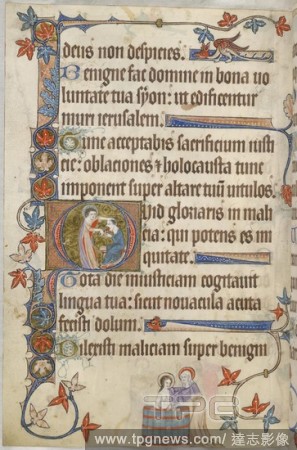 deus non despicies.
Benigne fac domine in bona uo
luntate tua syon: ut edificentur
muri ierusalem.
Tunc acceptabis sacrificium iusti
cie: oblaciones & holocausta tunc
imponent super altare tuū uitulos.
Quid gloriaris in mali
cia: qui potens es in
iquitate.
Tota die iniusticiam cogitauit
lingua tua: sicut nouacula acuta
fecisti dolum.
Dilexisti maliciam super benigni
TPG
www.tpgnews.com/達志影像